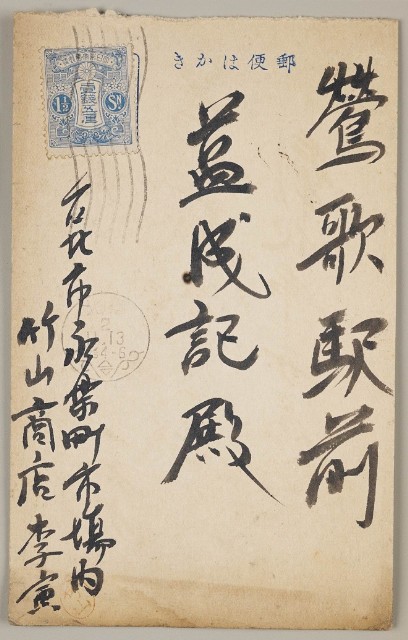 郵便はかき
鶯歌駅前
益成記殿
台北市永楽町市場内
竹山商店 李寅
1½ Sn
壹錢五厘
2
13